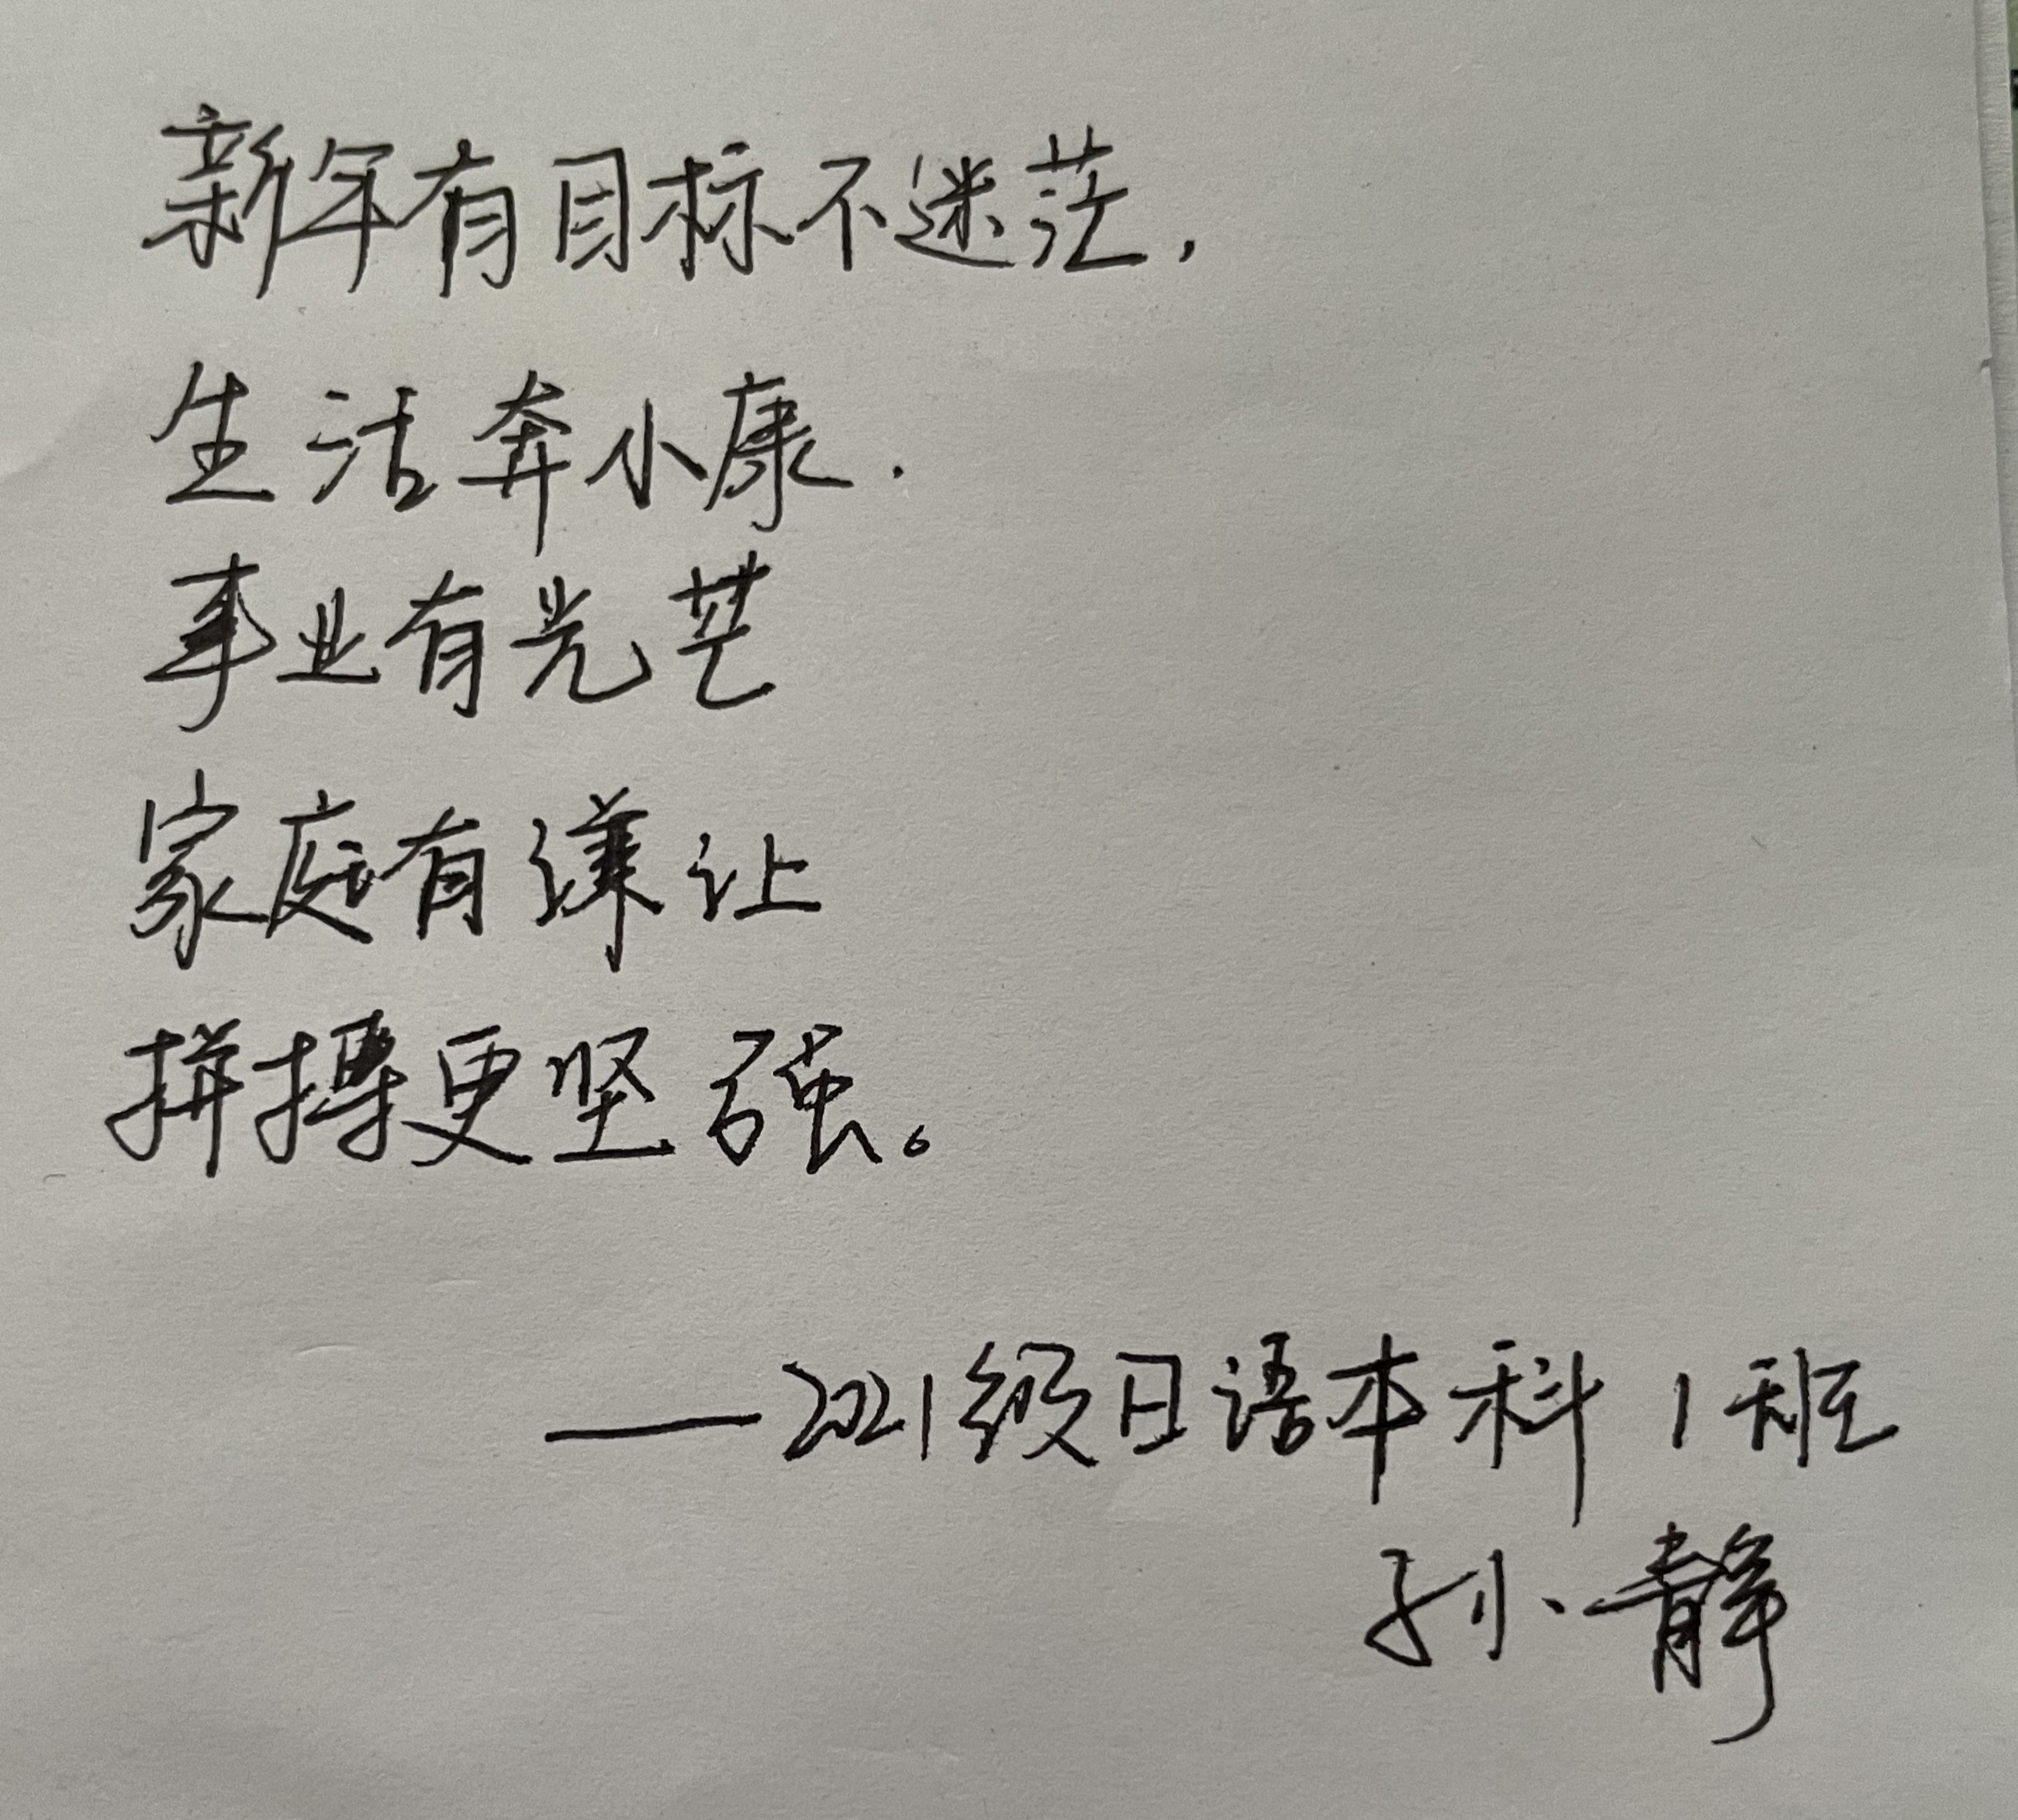 新年有目标不迷茫，
生活奔小康.
事业有光芒
家庭有谦让
拼搏更坚强。
——2021级日语本科1班
孙静